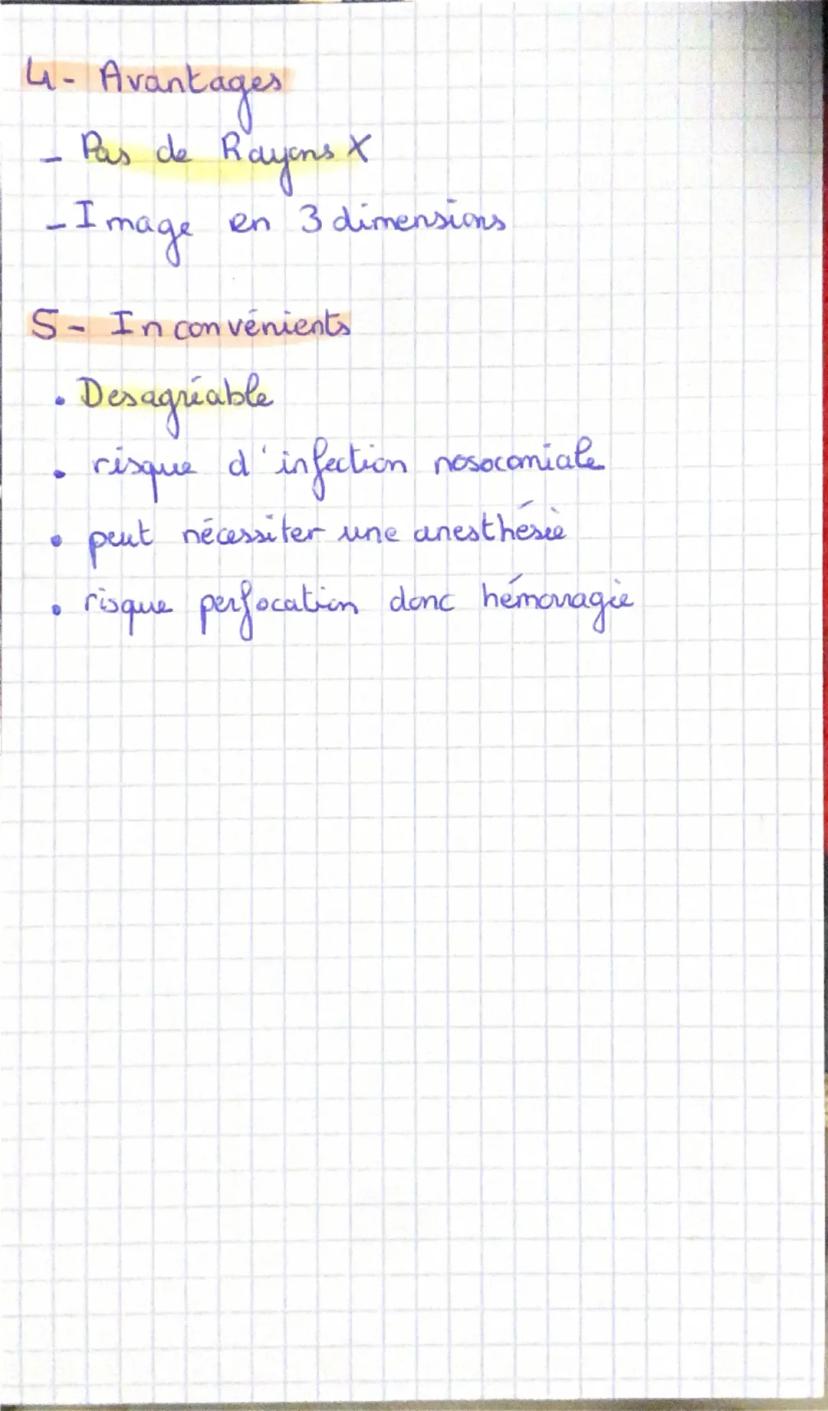 4- Avantages
- Pas de Rayons X
- Image en 3 dimensions
5- Inconvénients
• Desagréable
• risque d'infection nosocomiale
• peut nécessiter une anesthésie
• risque perforation donc hémorragie